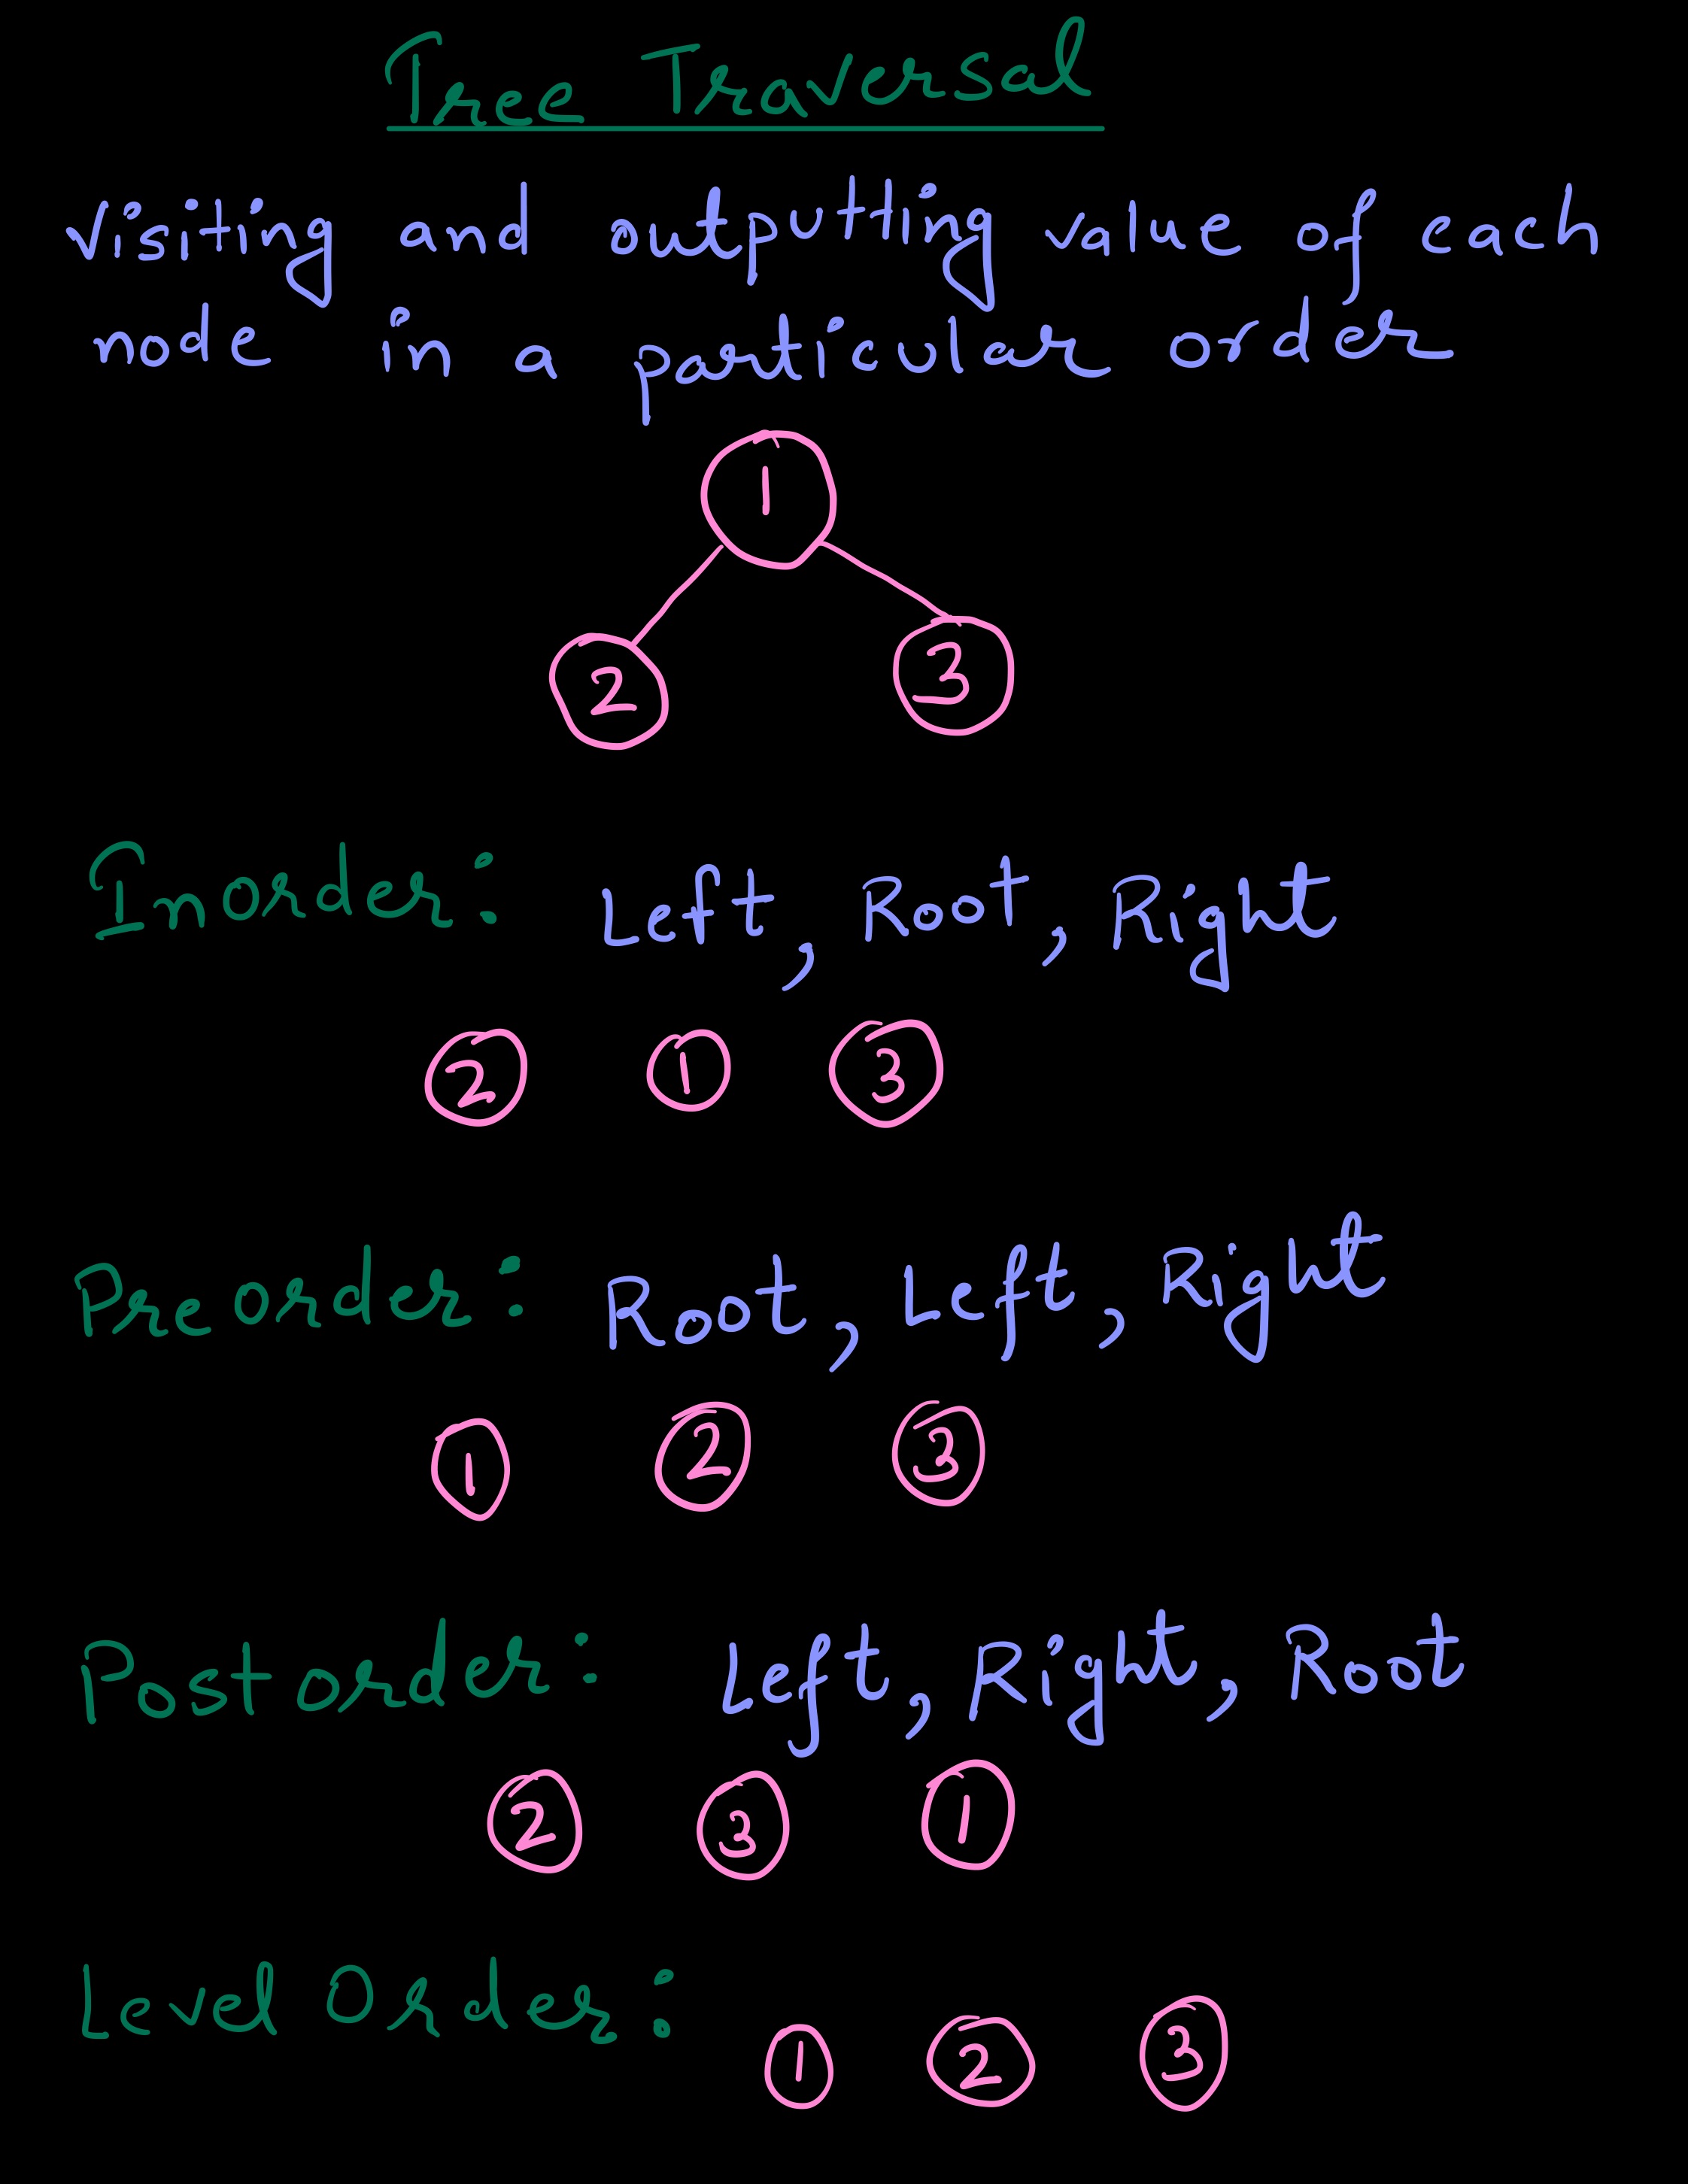 Tree Traversal
Visiting and outputting value of each
node in a particular order
1
2 3
Inorder: Left, Root, Right
2 1 3
Preorder: Root, Left, Right
1 2 3
Postorder: Left, Right, Root
2 3 1
Level Order: 1 2 3